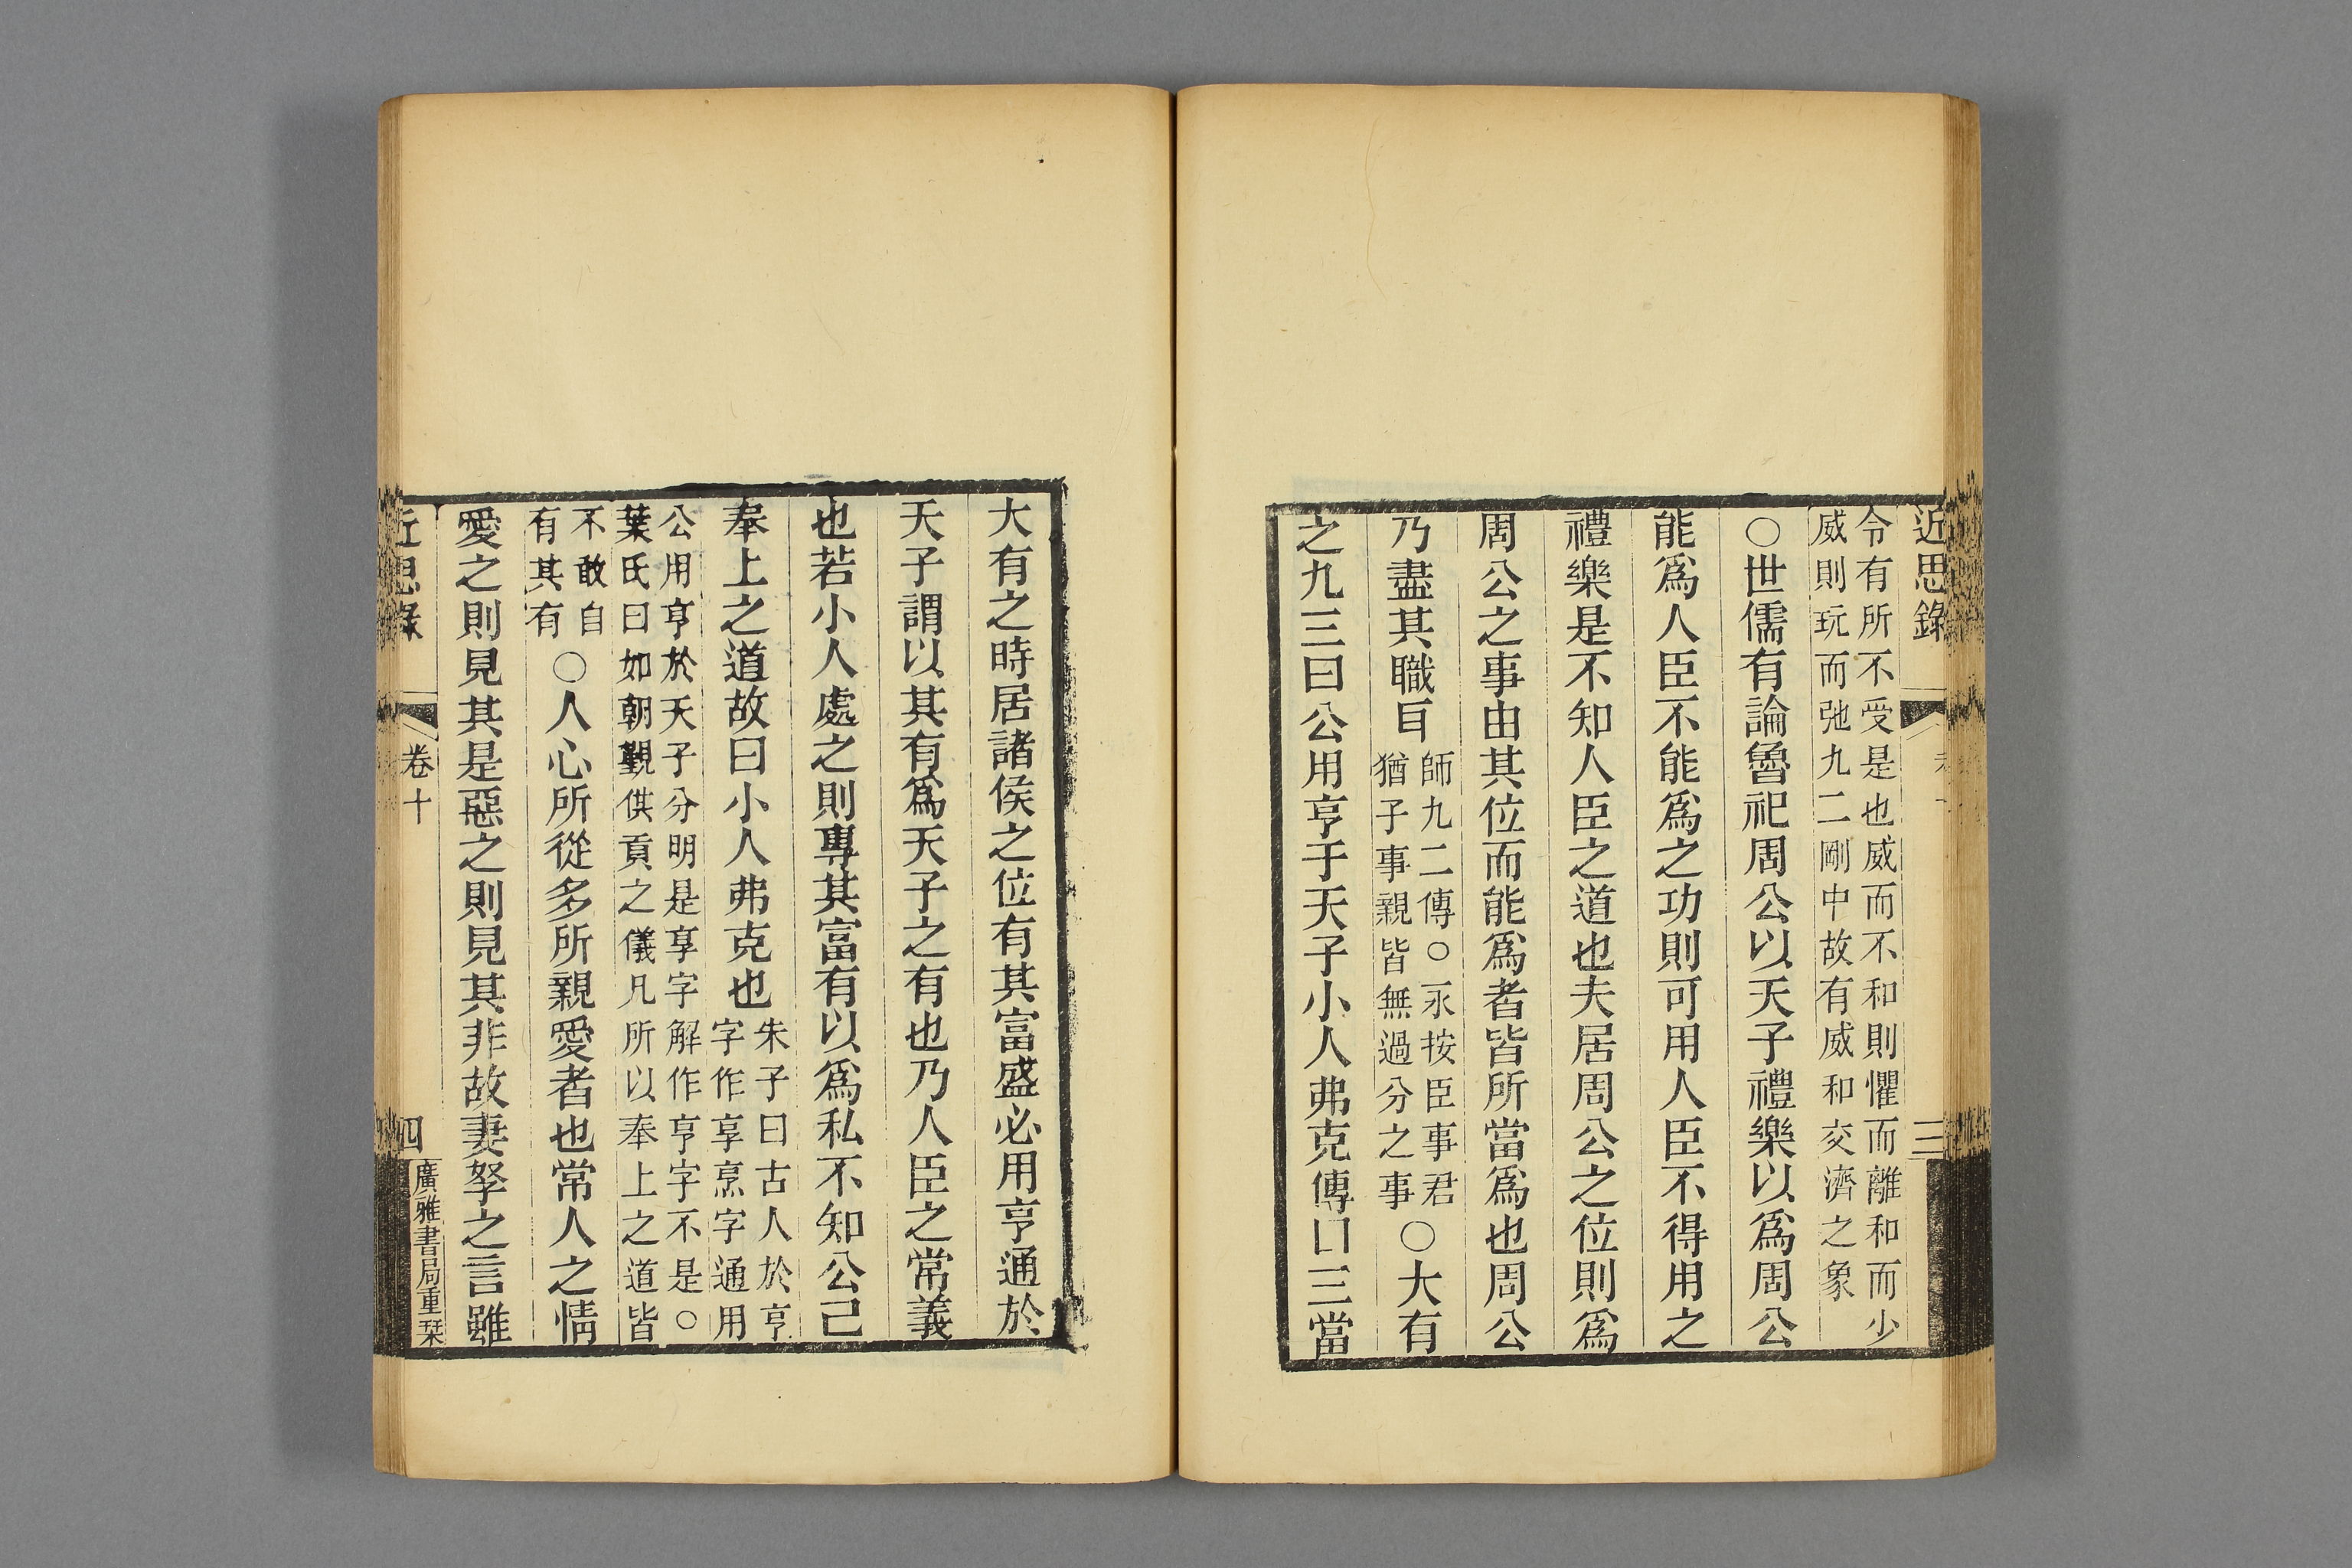 近思錄
三
令有所不受是也威而不和則懼而離和而少
威則玩而弛九二剛中故有威和交濟之象
○世儒有論魯祀周公以天子禮樂以爲周公
能爲人臣不能爲之功則可用人臣不得用之
禮樂是不知人臣之道也夫居周公之位則爲
周公之事由其位而能爲者皆所當爲也周公
乃盡其職耳
師九二傳○永按臣事君
猶子事親皆無過分之事
○大有
之九三曰公用亨于天子小人弗克傳曰三當
大有之時居諸侯之位有其富盛必用亨通於
天子謂以其有爲天子之有也乃人臣之常義
也若小人處之則專其富有以爲私不知公己
奉上之道故曰小人弗克也
朱子曰古人於亨
字作享烹字通用
公用亨於天子分明是享字解作亨字不是○
葉氏曰如朝覲供貢之儀凡所以奉上之道皆
不敢自
有其有
○人心所從多所親愛者也常人之情
愛之則見其是惡之則見其非故妻孥之言雖
近思錄
卷十
四
廣雅書局重栞